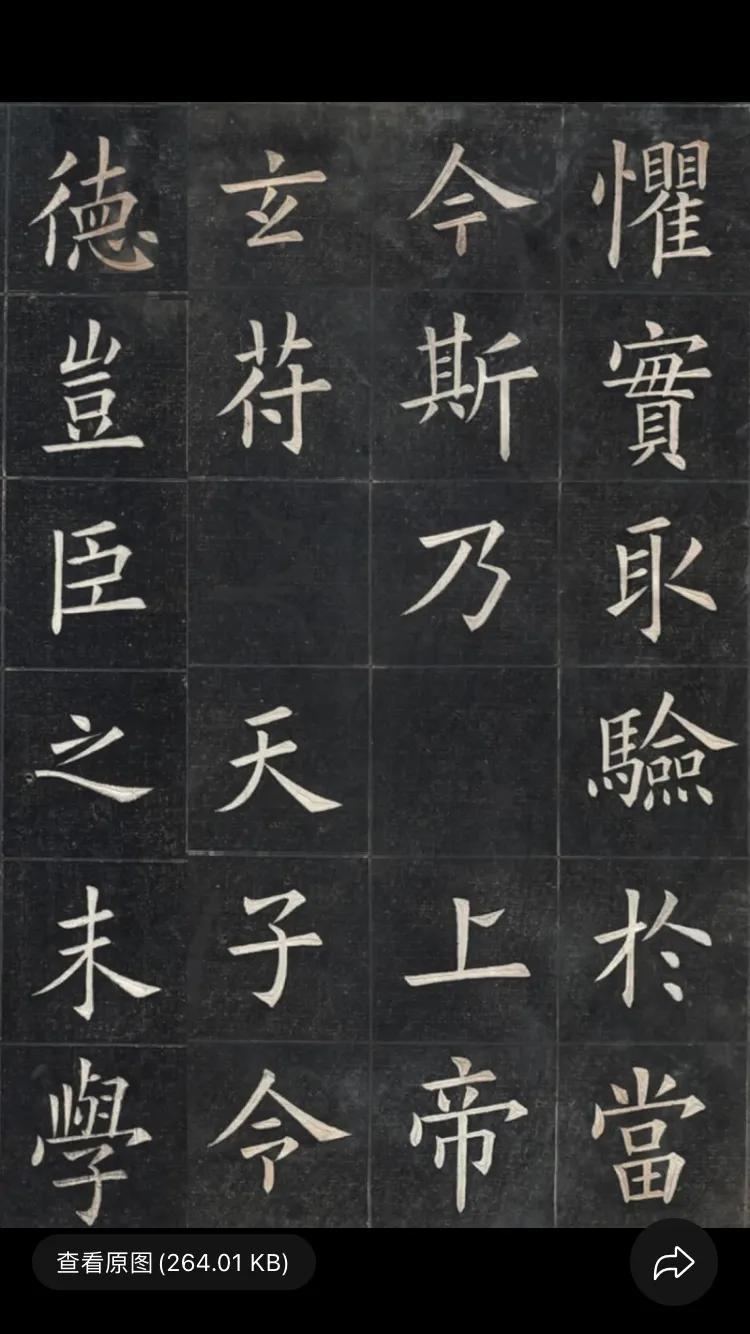 懼實取驗於當
今斯乃上帝
玄苻天子令
德豈臣之末學
查看原图 (264.01 KB)